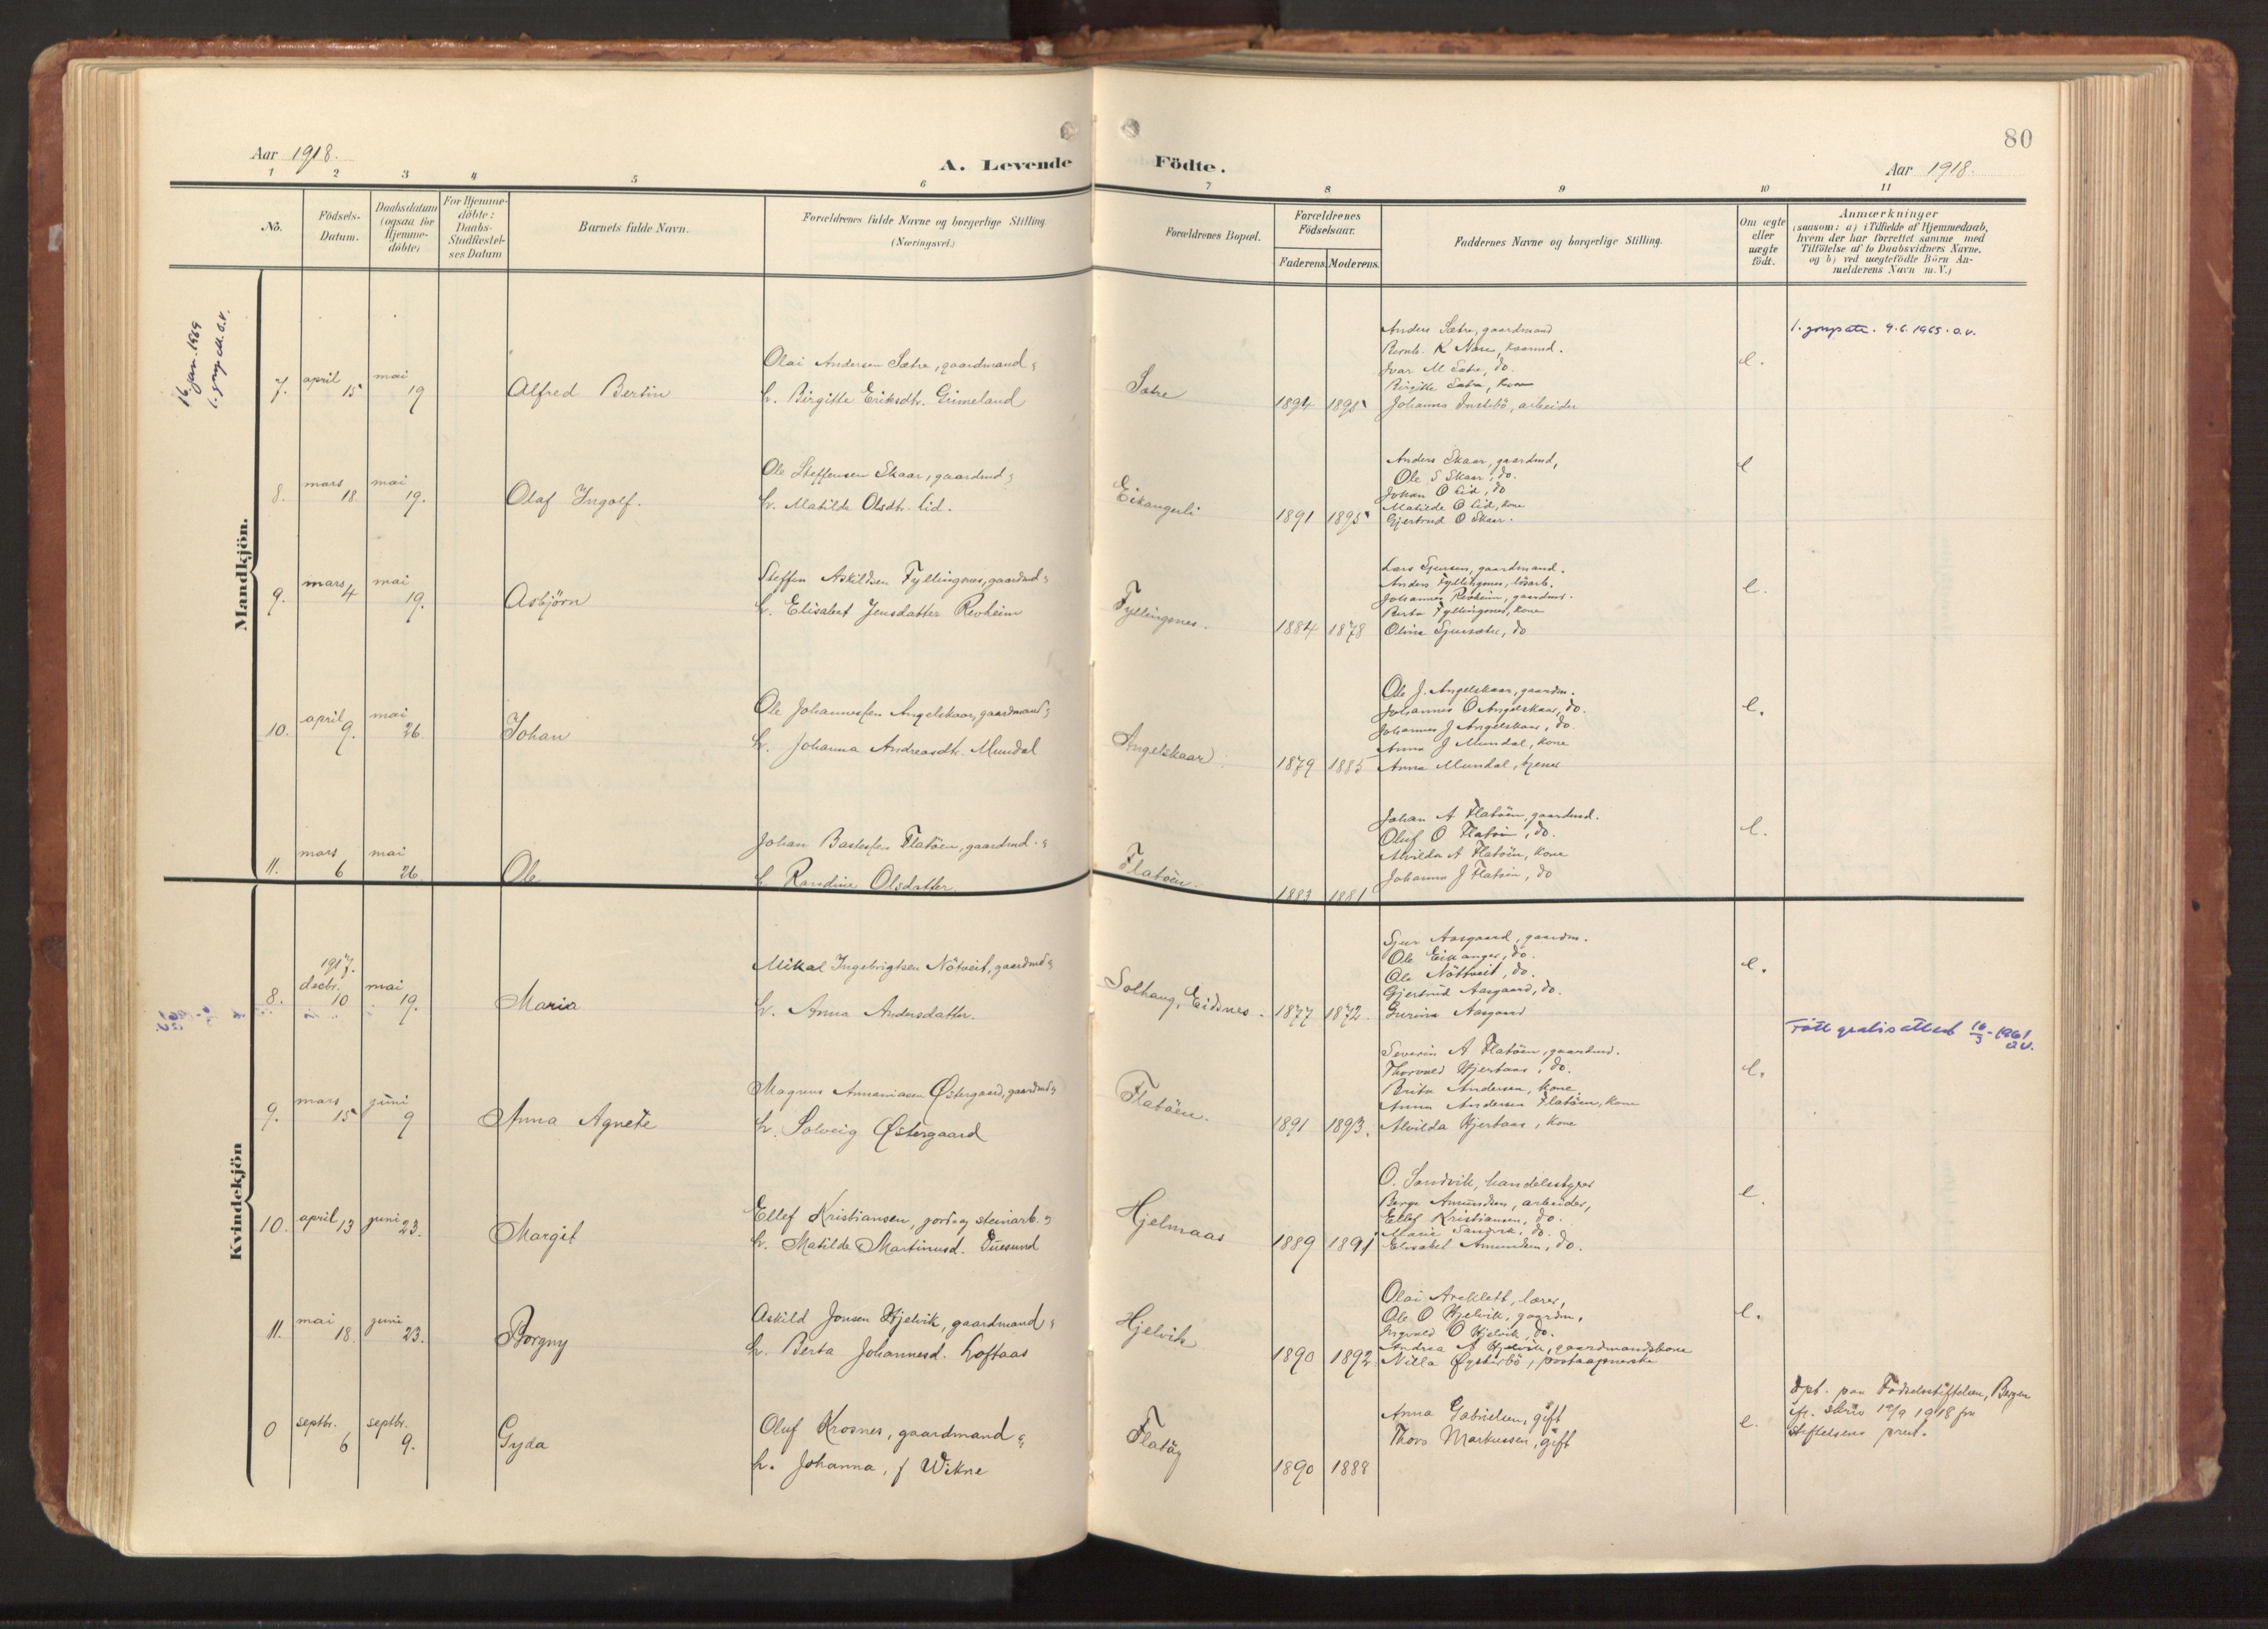 Aar 1918.
A. Levende Födte.
80
Aar 1918.
1 2 3 4 5 6 7 8 9 10 11
No.
Födsels-Datum.
Daabsdatum (ogsaa for Hjemme-döbte)
For Hjemme-döbte: Daabs-Stadfæstel-ses Datum
Barnets fulde Navn.
Forældrenes fulde Navne og borgerlige Stilling.
(Næringsvei.)
Forældrenes Bopæl.
Forældrenes Födselsaar.
Faderens. Moderens.
Faddernes Navne og borgerlige Stilling.
Om ægte eller uægte födt.
Anmærkninger
(saasom: a) i Tilfælde af Hjemmedaab,
hvem der har forrettet samme med
Tilföielse af to Daabsvidners Navne.
og b) ved uægtefödte Börn An-
melderens Navn m. V.)
Mandkjön.
16. jan. 1969
7. april 15 mai 19 Alfred Bertin
Olai Andersen Sætre, gaardmand &
h. Birgitte Eriksdtr. Grimeland
Sætre
1894 1895
Anders Sætre, gaardmand
Ivar M Sætre, do.
Birgitte Sætre, kone
Johannes Instebö, arbeider
e.
9.6.1965. o.v.
8. mars 18. mai 19. Olaf Ingolf.
Ole Steffensen Skaar, gaardmd &
h. Matilde Olsdtr. Lid.
Eikangerli
1891 1895
Anders Skaar, gaardmd,
Ole S Skaar, do.
Johan O Lid, do
Matilde O Lid, kone
Gjertrud O Skaar.
e
9. mars 4 mai 19. Asbjörn
Steffen Askildsen Fyllingsnes, gaardmd &
h. Elisabet Jensdatter Rivheim
Fyllingsnes.
1884 1878
Lars Sjursen, gaardmand.
Anders Fyllingsnes, lösarb.
Johannes Rivheim, gaardm.
Berta Fyllingsnes, kone
Olina Sjursætre, do
e.
10. april 9. mai 26. Johan
Ole Johannessen Angelskaar, gaardmand &
h. Johanna Andreasdtr. Mundal
Angelskaar
1879 1885
Ole J. Angelskaar, gaardm.
Johannes O Angelskaar, do.
Johannes J Angelskaar, do.
Anna J Mundal, kone
Anna Mundal, tjener
e.
11. mars 6 mai 26. Ole
Johan Bastessen Flatöen, gaardmd. &
h Randine Olsdatter
Flatöen.
1883 1881
Johan A Flatöen, gaardmd.
Oluf O Flatöen, do.
Alvilda A Flatöen, kone
Johanna J Flatöen, do
e.
Kvindekjön
8. 1917. decbr. 10 mai 19. Maria
Mikal Ingebrigtsen Nötveit, gaardmd &
h. Anna Andersdatter.
Solhaug, Eidsnes.
1877 1872
Sjur Aasgaard, gaardm.
Ole Eikanger, do.
Ole Nöttveit, do.
Gjertrud Aasgaard, do.
Gurina Aasgaard
e.
Födt gratisattest 16/3-1961
o.v.
9. mars 15 juni 9 Anna Agnete
Magnus Annaniasen Østergaard, gaardmd &
h. Solveig Østergaard
Flatöen.
1891 1893.
Severin A Flatöen, gaardmd.
Thorvald Hjertaas, do.
Brita Andersen, kone
Anna Andersen Flatöen, kone
Alvilda Hjertaas, kone
e.
10. april 13 juni 23. Margit
Ellef Kristiansen, jord og steinarb. &
h. Matilde Martinusd. Duesund
Hjelmaas
1889 1891
O. Sandvik, handelsstyrer
Berge Amundsen, arbeider,
Ellef Kristiansen, do.
Marie Sandvik, do.
Elisabet Amundsen, do.
e.
11. mai 18. juni 23. Borgny
Askild Jonsen Hjelvik, gaardmand &
h. Berta Johannesd. Loftaas
Hjelvik
1890 1892.
Olai Areklett, lærer,
Ole O Hjelvik, gaardm,
Ingvald O Hjelvik, do.
Andrea A Hjelvik, gaardmandskone
Nilla Øysterbö, postaapnerske
e.
0 septbr. 6 septbr. 9. Gyda
Oluf Krosnes, gaardmand &
h. Johanna, f Wikne
Flatöy
1890 1888
Anna Gabrielsen, gift
Thora Markussen, gift
e.
Dpt. paa Födselsstiftelsen, Bergen
ifl. skriv 19/9 1918 fra
Stiftelsens prest.